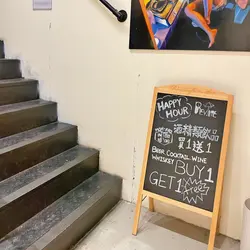 HAPPY
HOUR
酒精類飲品
買1送1
BEER COCKTAIL WINE
WHISKEY
BUY 1
GET 1
Free